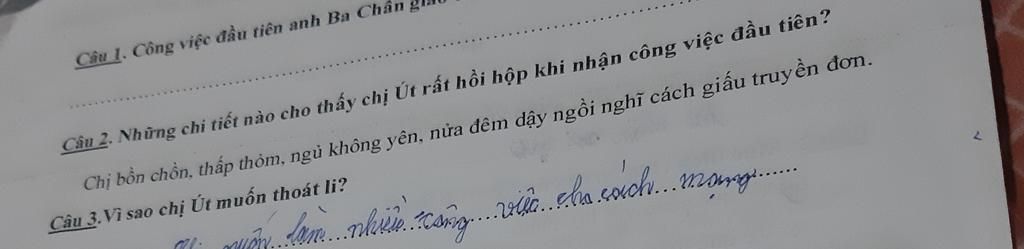 Câu 1. Công việc đầu tiên anh Ba Chẩn
Câu 2. Những chi tiết nào cho thấy chị Út rất hồi hộp khi nhận công việc đầu tiên?
Chị bồn chồn, thấp thỏm, ngủ không yên, nửa đêm dậy ngồi nghĩ cách giấu truyền đơn.
Câu 3.Vì sao chị Út muốn thoát li?
muốn làm nhiều công việc cho cách mạng